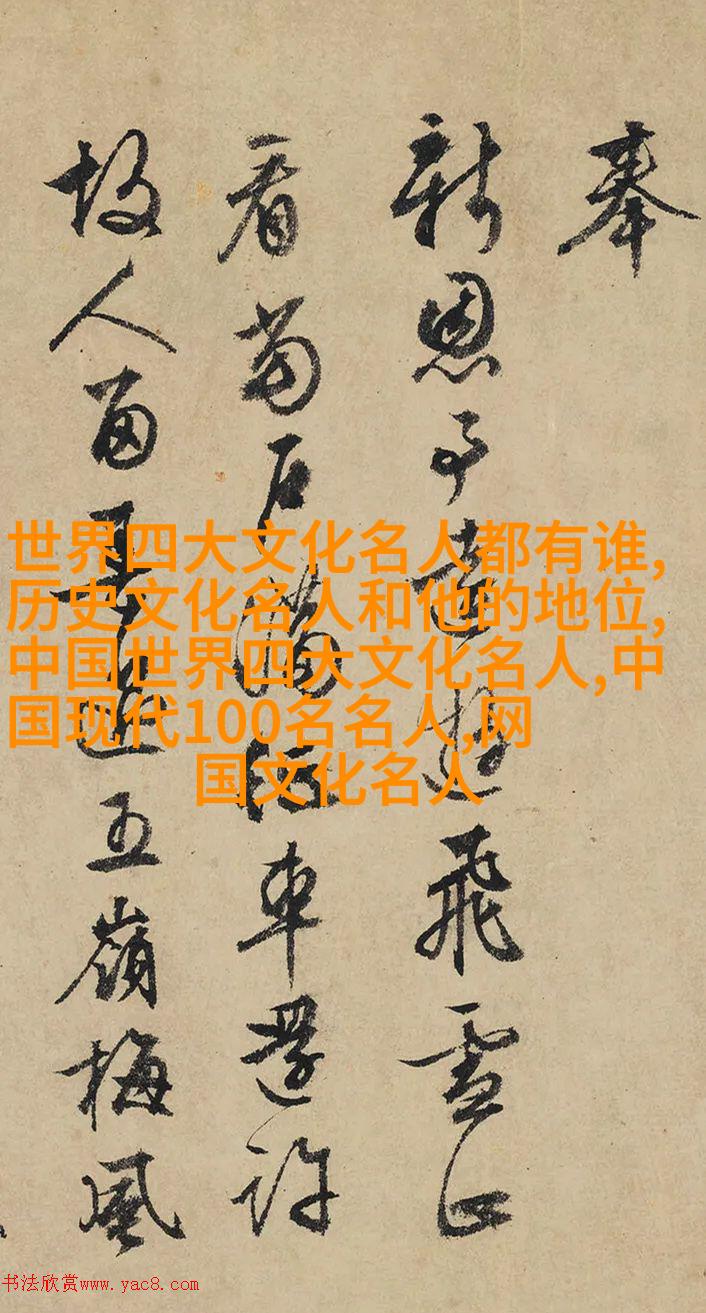 奉
新恩事遠遊飛雪正
看當户滿征車還許
故人留五嶺梅風
世界四大文化名人都有谁,
历史文化名人和他的地位,
中国世界四大文化名人,中
国现代100名名人,网
国文化名人
书法欣赏www.yac8.com